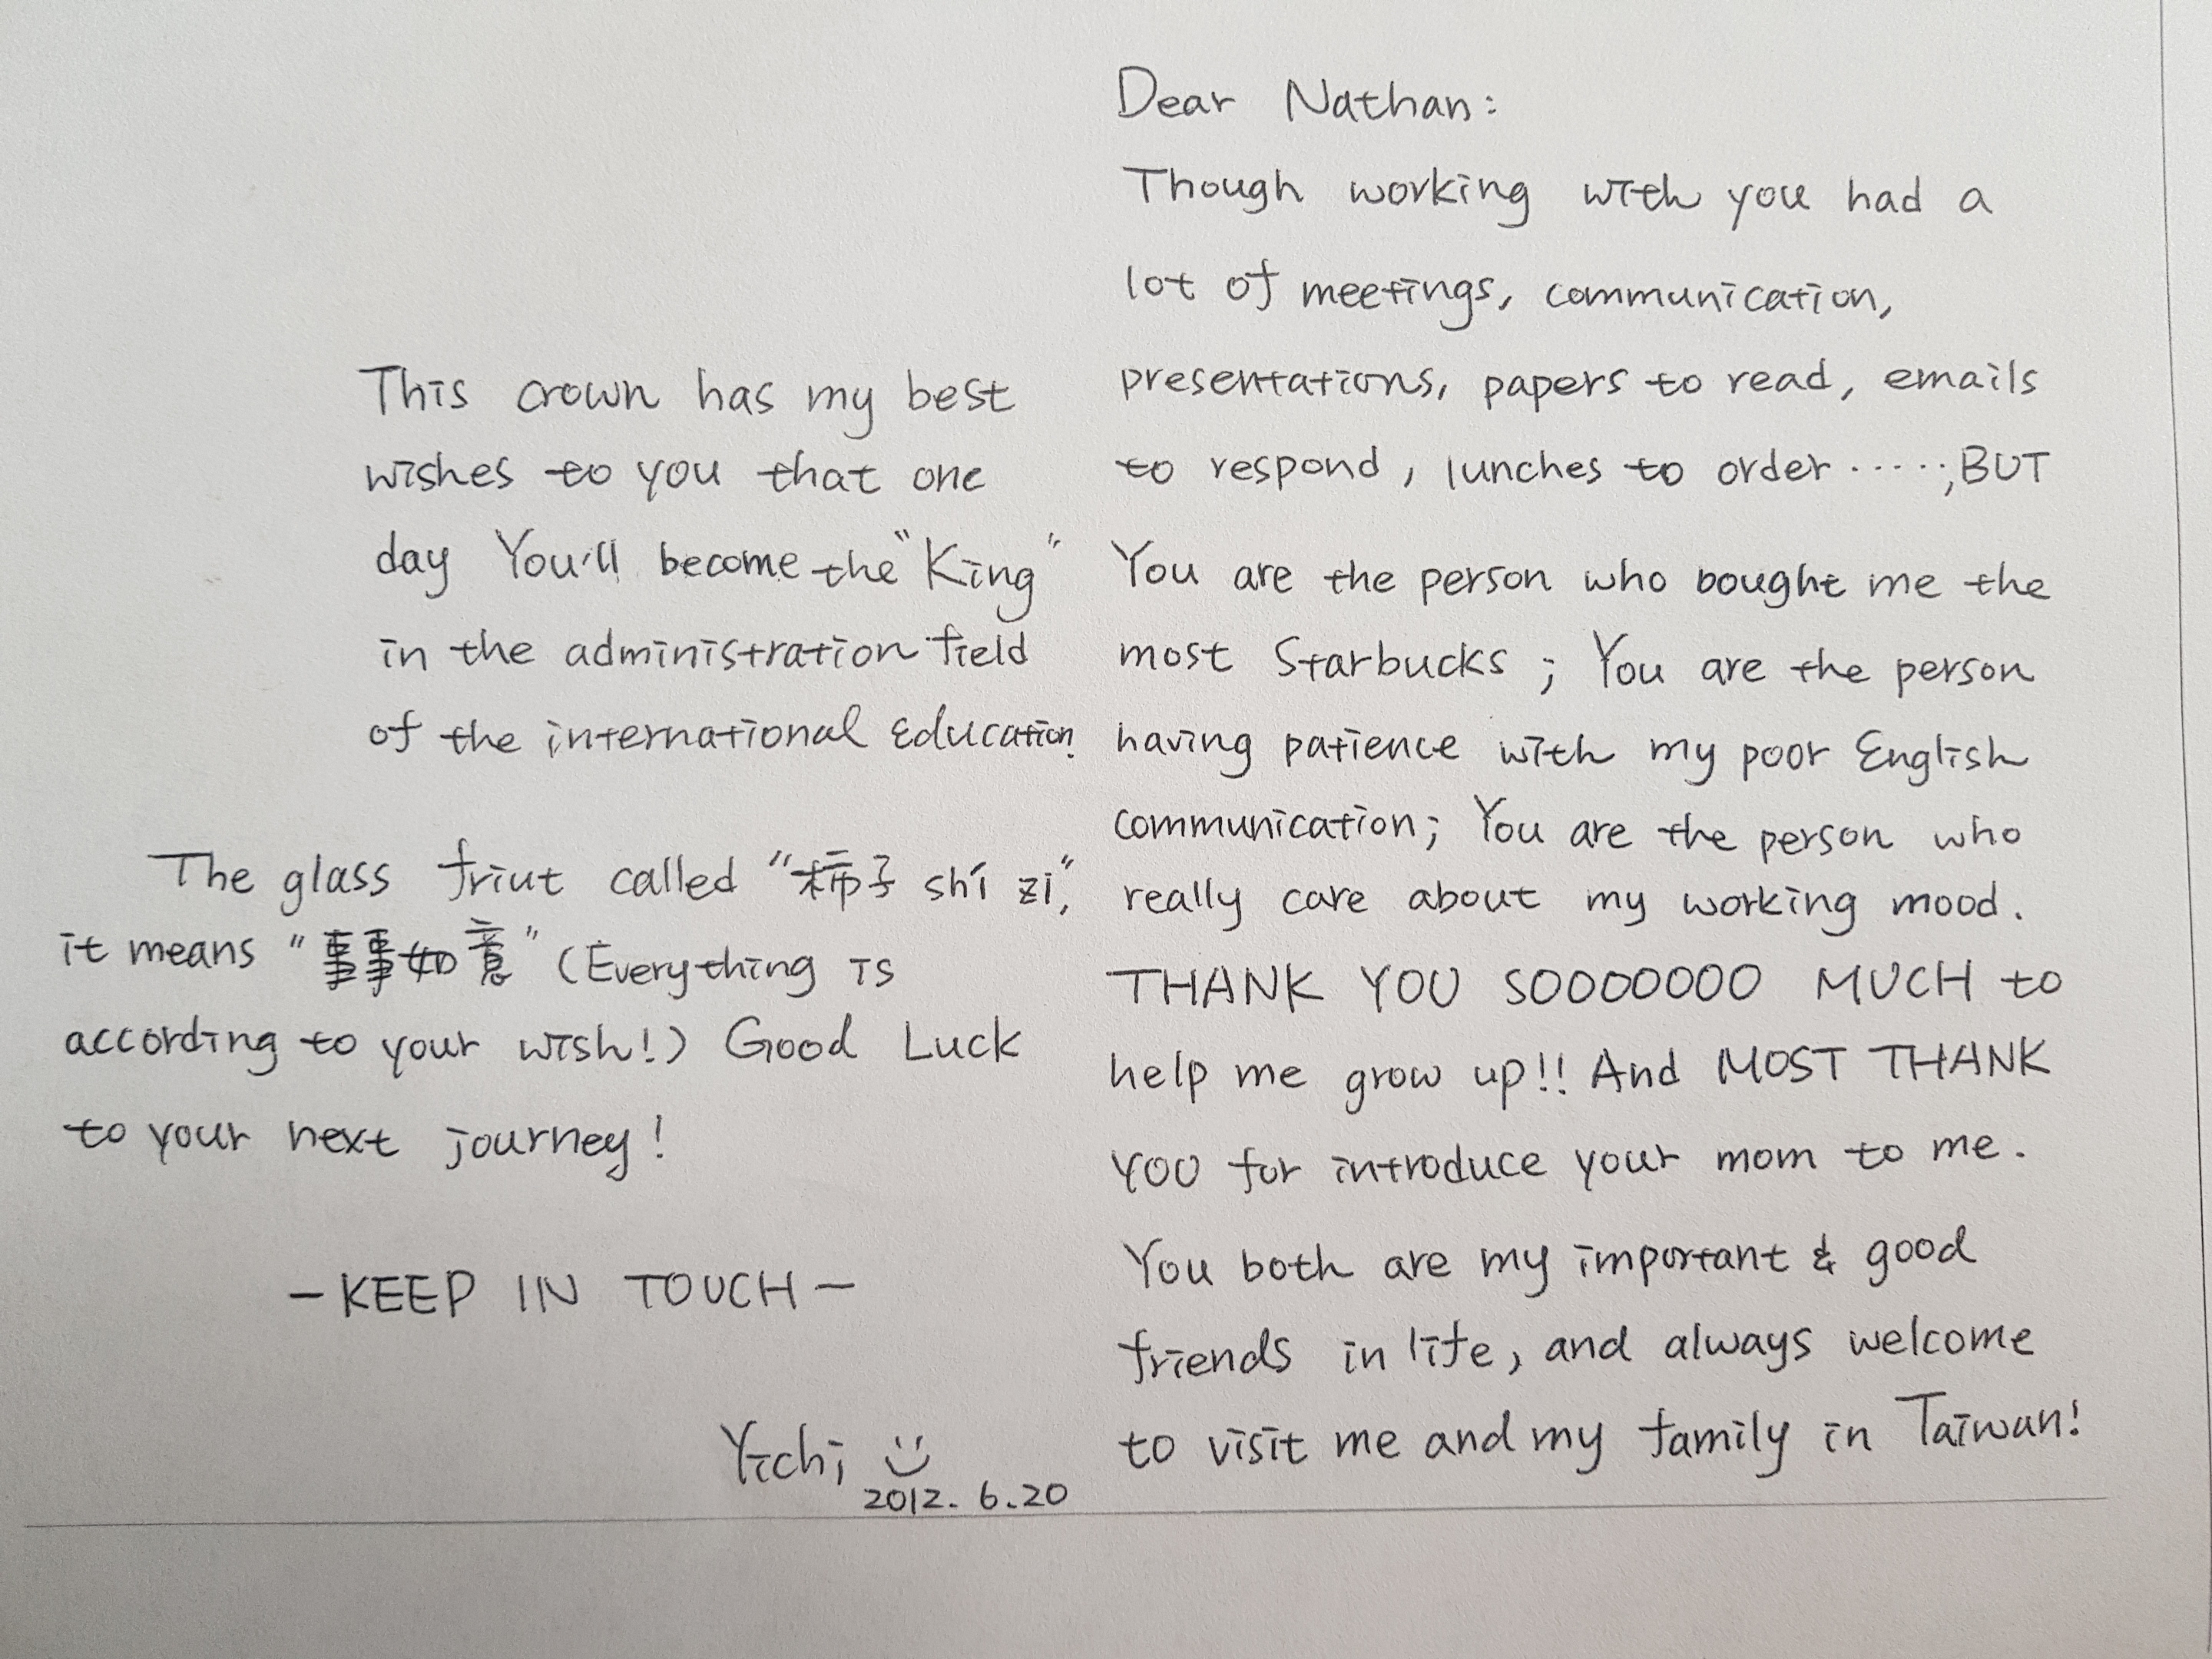 Dear Nathan:
Though working with you had a
lot of meetings, communication,
presentations, papers to read, emails
to respond, lunches to order ·····, BUT
You are the person who bought me the
most Starbucks ; You are the person
having patience with my poor English
communication; You are the person who
really care about my working mood.
THANK YOU SOOOOOOO MUCH to
help me grow up!! And MOST THANK
YOU for introduce your mom to me.
You both are my important & good
friends in life, and always welcome
to visit me and my family in Taiwan!
This crown has my best
wishes to you that one
day You'll become the "King"
in the administration field
of the international Education.
The glass friut called "柿子 shí zi,"
it means "事事如意" (Everything is
according to your wish!) Good Luck
to your next journey!
- KEEP IN TOUCH -
Yichi
2012. 6.20